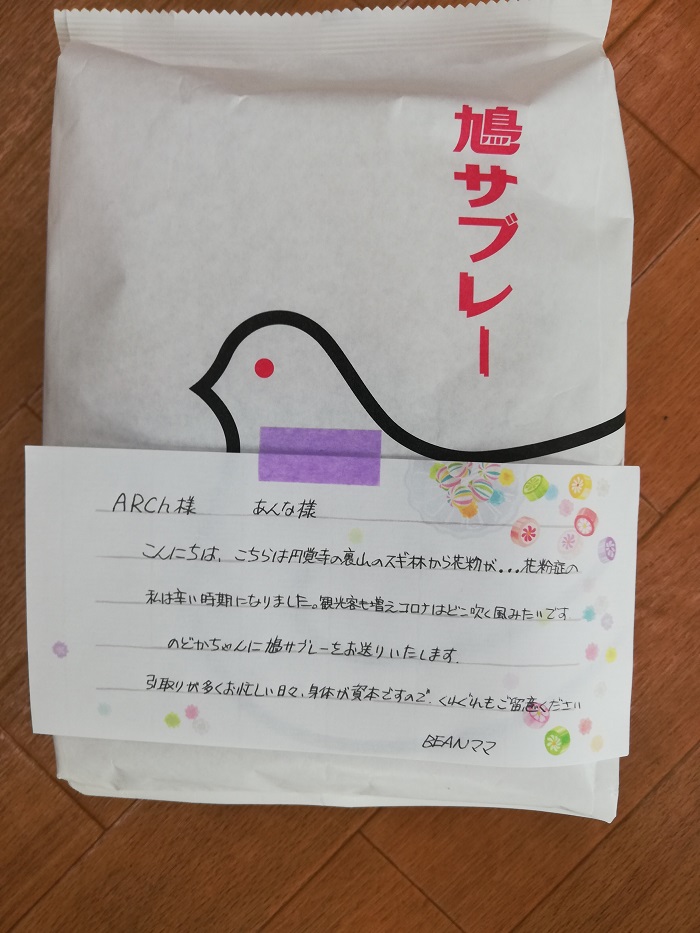 鳩サブレー
ARCh様　あんな様
こんにちは、こちらは円覚寺の裏山のスギ林から花粉が...花粉症の
私は辛い時期になりました。観光客も増えコロナはどこ吹く風みたいです
のどかちゃんに鳩サブレーをお送りいたします.
引取りが多くお忙しい日々、身体が資本ですので、くれぐれもご留意ください
BEANママ